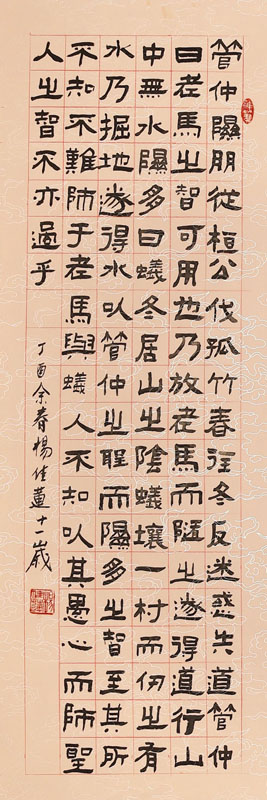 管仲隰朋從桓公伐孤竹春往冬反迷惑失道管仲
曰老馬之智可用也乃放老馬而隨之遂得道行山
中無水隰多曰蟻冬居山之陰蟻壤一村而仞之有
水乃掘地遂得水以管仲之聖而隰多之智至其所
不知不難師于老馬與蟻人不知以其愚心而師聖
人之智不亦過乎
丁酉余春楊佳蓮十一歲